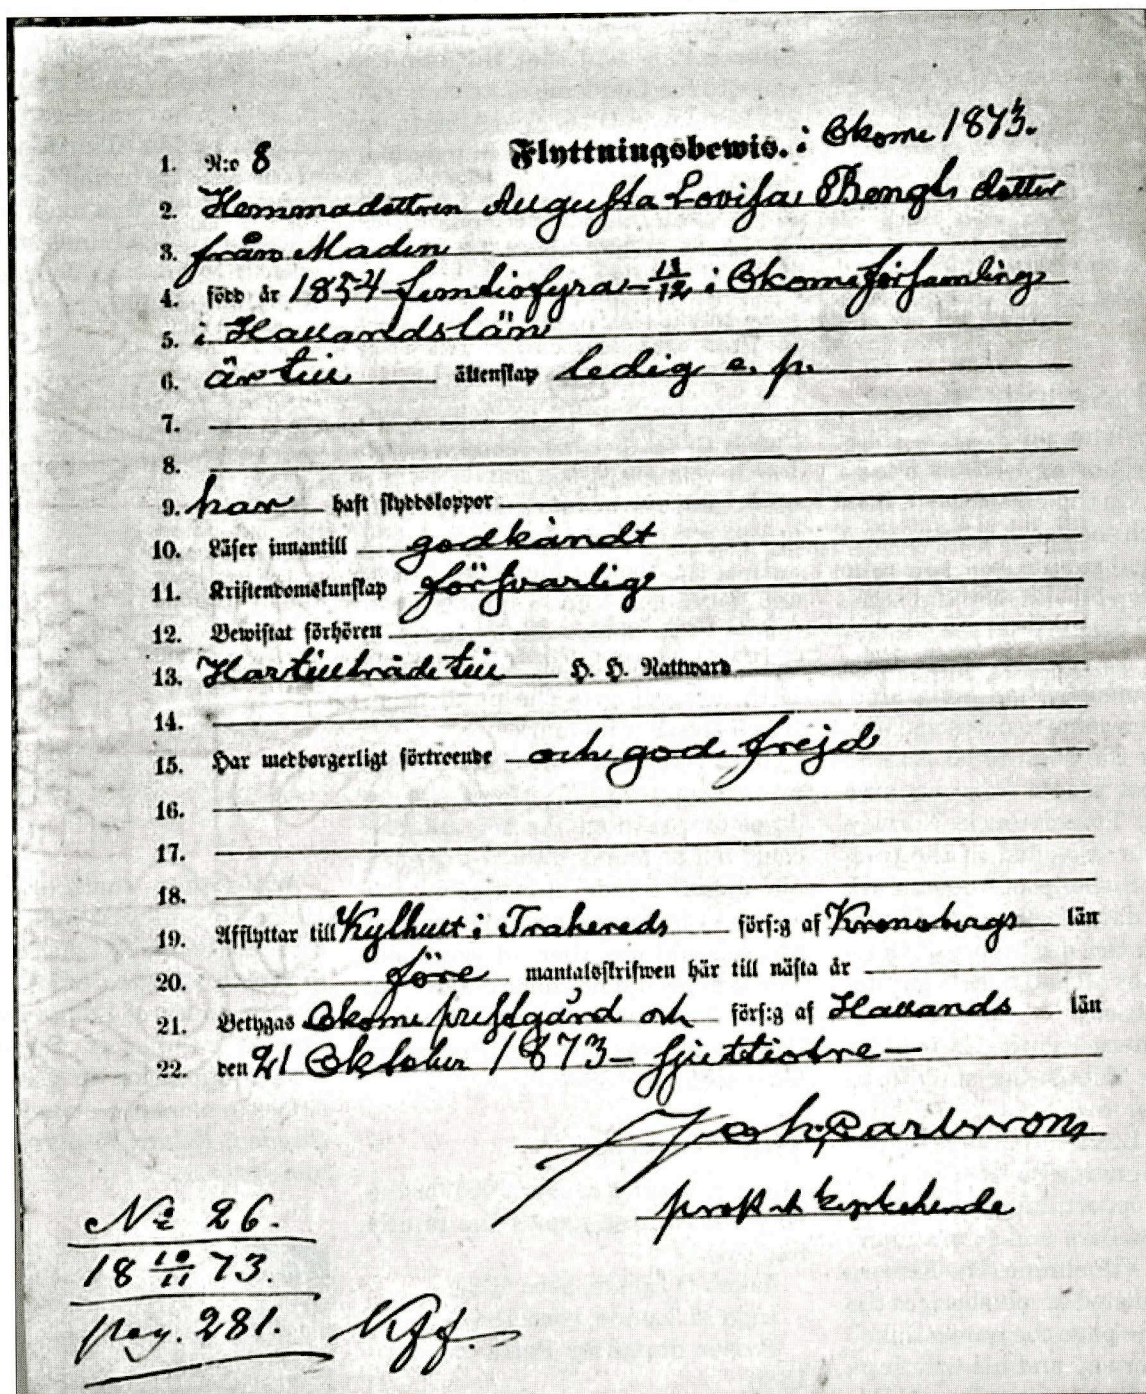 1. N:o 8 Flyttningsbewis. i Okome 1873.
2. Hemmadottren Augusta Lovisa Bengts dotter
3. från Maden
4. född år 1854 femtiofyra 13/12 i Okome församling
5. i Hallands län
6. är till äktenskap ledig e. p.
7.
8.
9. har haft skyddskoppor
10. Läser innantill godkändt
11. Kristendomskunskap försvarlig
12. Bewistat förhören
13. Har tillträde till H. H. Nattward
14.
15. Har medborgerligt förtroende och god frejd
16.
17.
18.
19. Afflyttar till Kylhult i Trahereds förs:g af Kronobergs län
20. före mantalsskrifwen här till nästa år
21. Betygas Okome prestgård och förs:g af Hallands län
22. den 21 Oktober 1873 – sjuttiotre –
Joh Carlsson
prost kyrkoherde
No 26.
18 10/11 73.
pag. 281.